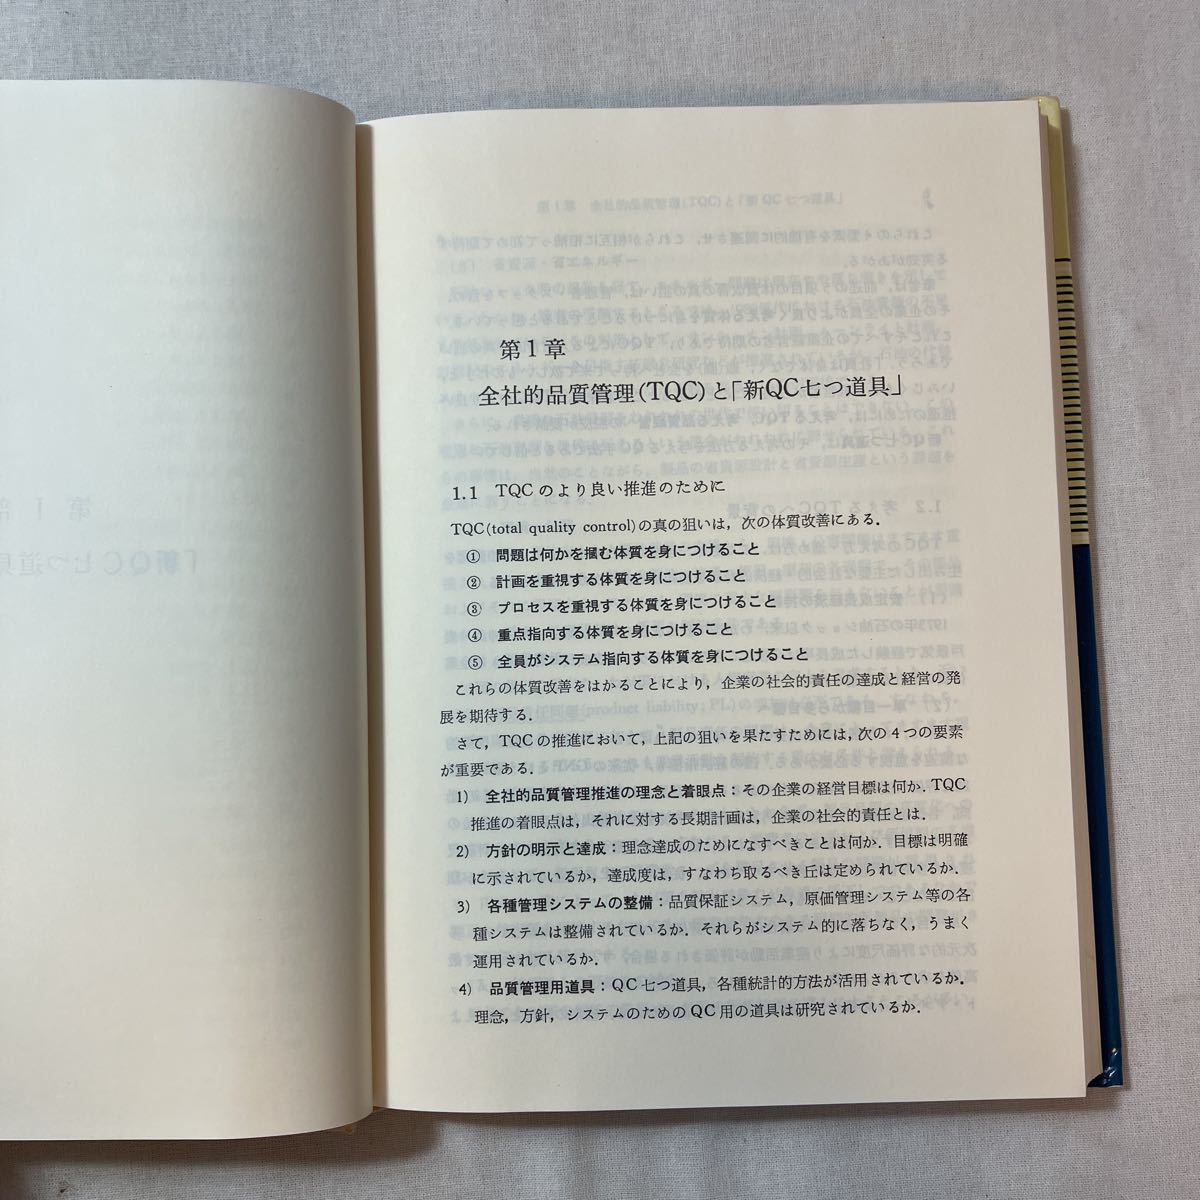 第1章
全社的品質管理(TQC)と「新QC七つ道具」
1.1 TQCのより良い推進のために
TQC(total quality control)の真の狙いは，次の体質改善にある．
① 問題は何かを掴む体質を身につけること
② 計画を重視する体質を身につけること
③ プロセスを重視する体質を身につけること
④ 重点指向する体質を身につけること
⑤ 全員がシステム指向する体質を身につけること
これらの体質改善をはかることにより，企業の社会的責任の達成と経営の発
展を期待する．
さて，TQCの推進において，上記の狙いを果たすためには，次の4つの要素
が重要である．
1) 全社的品質管理推進の理念と着眼点：その企業の経営目標は何か．TQC
推進の着眼点は，それに対する長期計画は，企業の社会的責任とは．
2) 方針の明示と達成：理念達成のためになすべきことは何か．目標は明確
に示されているか，達成度は，すなわち取るべき丘は定められているか．
3) 各種管理システムの整備：品質保証システム，原価管理システム等の各
種システムは整備されているか．それらがシステム的に落ちなく，うまく
運用されているか．
4) 品質管理用道具：QC七つ道具，各種統計的方法が活用されているか．
理念，方針，システムのためのQC用の道具は研究されているか．